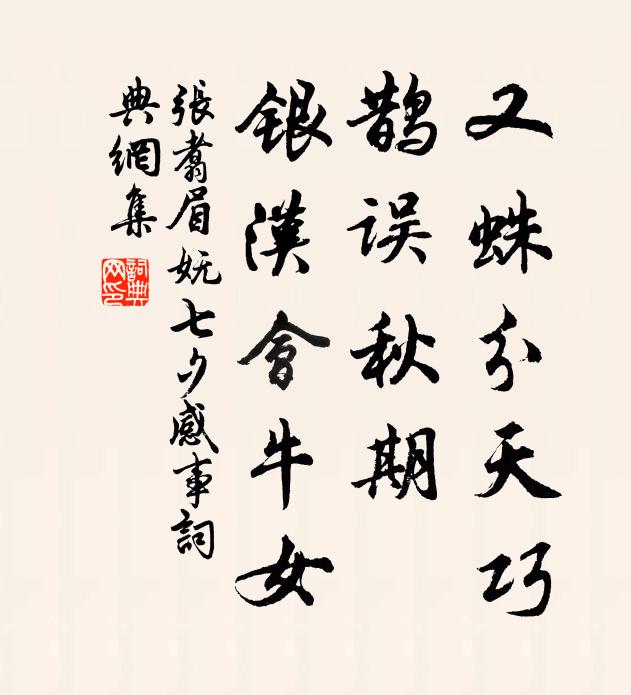 又蛛分天巧
鹊误秋期
銀漢會牛女
張翥眉嫵七夕感事詞
典網集
詞典
网印